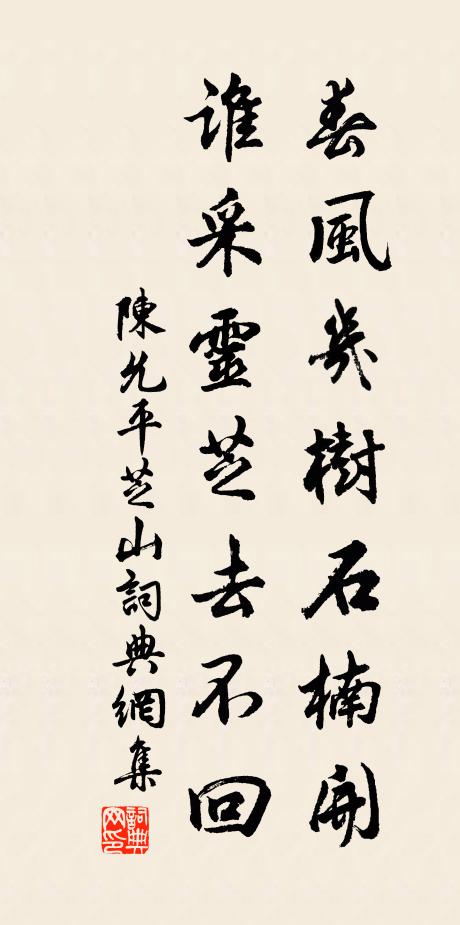 春風幾樹石楠開
誰采靈芝去不回
陳允平芝山詞典網集
詞典网印